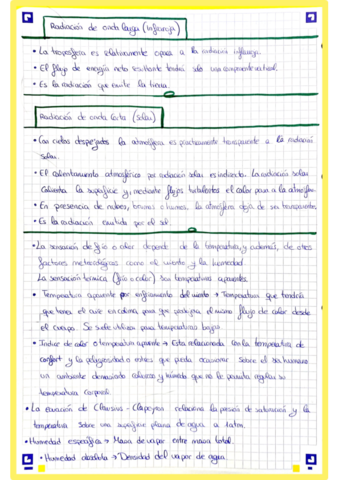 Radiación de onda larga (infrarroja)
• La troposfera es relativamente opaca a la radiación infrarroja.
• El flujo de energía neto resultante tendrá solo una componente vertical.
• Es la radiación que emite la tierra.
Radiación de onda corta (solar)
• Con cielos despejados la atmósfera es practicamente transparente a la radiación
solar.
• El calentamiento atmosférico por radiación solar es indirecto. La radiación solar
calienta la superficie y, mediante flujos turbulentos el calor pasa a la atmósfera.
• En presencia de nubes, brumas o humos, la atmósfera deja de ser transparente.
• Es la radiación emitida por el sol.
• La sensación de frío o calor depende de la temperatura y además, de otros
factores meteorológicos como el viento y la humedad.
La sensación termica (frío o calor) son temperaturas aparentes.
• Temperatura aparente por enfriamiento del viento → Temperatura que tendría
que tener el aire en calma, para que produzca el mismo flujo de calor desde
el cuerpo. Se suele utilizar para temperaturas bajas.
• Indice de calor o temperatura aparente → Esta relacionada con la temperatura de
confort y la peligrosidad o estrés que pueda ocasionar sobre el ser humano
un ambiente demasiado caluroso y húmedo que no le permita regular su
temperatura corporal.
• La ecuación de Clausius - Clapeyron relaciona la presión de saturación y la
temperatura sobre una superficie plana de agua a 1 atm.
• Humedad específica → Masa de vapor entre masa total.
• Humedad absoluta → Densidad del vapor de agua.